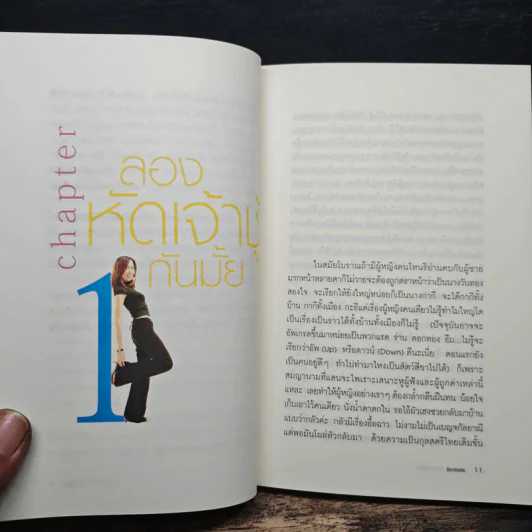 chapter
1
ลอง
หัดเจ้าชู้
กันมั้ย
ในสมัยโบราณถ้ามีผู้หญิงคนไหนริอ่านคบกับผู้ชาย
มากหน้าหลายตาก็ไม่วายจะต้องถูกตราหน้าว่าเป็นนางวันทอง
สองใจ จะเรียกให้ยิ่งใหญ่หน่อยก็เป็นนางกากี จะได้กากีทั้ง
บ้าน กากีทั้งเมือง กะอีแค่เรื่องผู้หญิงคนเดียวไม่รู้ทำไมใหญ่โต
เป็นเรื่องเป็นราวได้ทั้งบ้านทั้งเมืองก็ไม่รู้ (ปัจจุบันอาจจะ
อัพเกรดขึ้นมาหน่อยเป็นพวกแรด ร่าน ดอกทอง อึ่ม...ไม่รู้จะ
เรียกว่าอัพ (Up) หรือดาวน์ (Down) ดีนะเนี่ย ตอนแรกยัง
เป็นคนอยู่ดีๆ ทำไปทำมาไหงเป็นสัตว์สี่ขาไปได้) ก็เพราะ
สมญานามที่แสนจะไพเราะเสนาะหูผู้ฟังและผู้ถูกด่าเหล่านี้
แหละ เลยทำให้ผู้หญิงอย่างเราๆ ต้องกล้ำกลืนฝืนทน น้อยใจ
เก็บเอาไว้คนเดียว นั่งน้ำตาตกใน รอไอ้ผัวเฮงซวยกลับมาบ้าน
แบบว่ากลัวค่ะ กลัวมีเรื่องอื้อฉาว ไม่งามไม่เป็นเบญจกัลยาณี
แต่พอมันโผล่หัวกลับมา ด้วยความเป็นกุลสตรีไทยเต็มขั้น
11